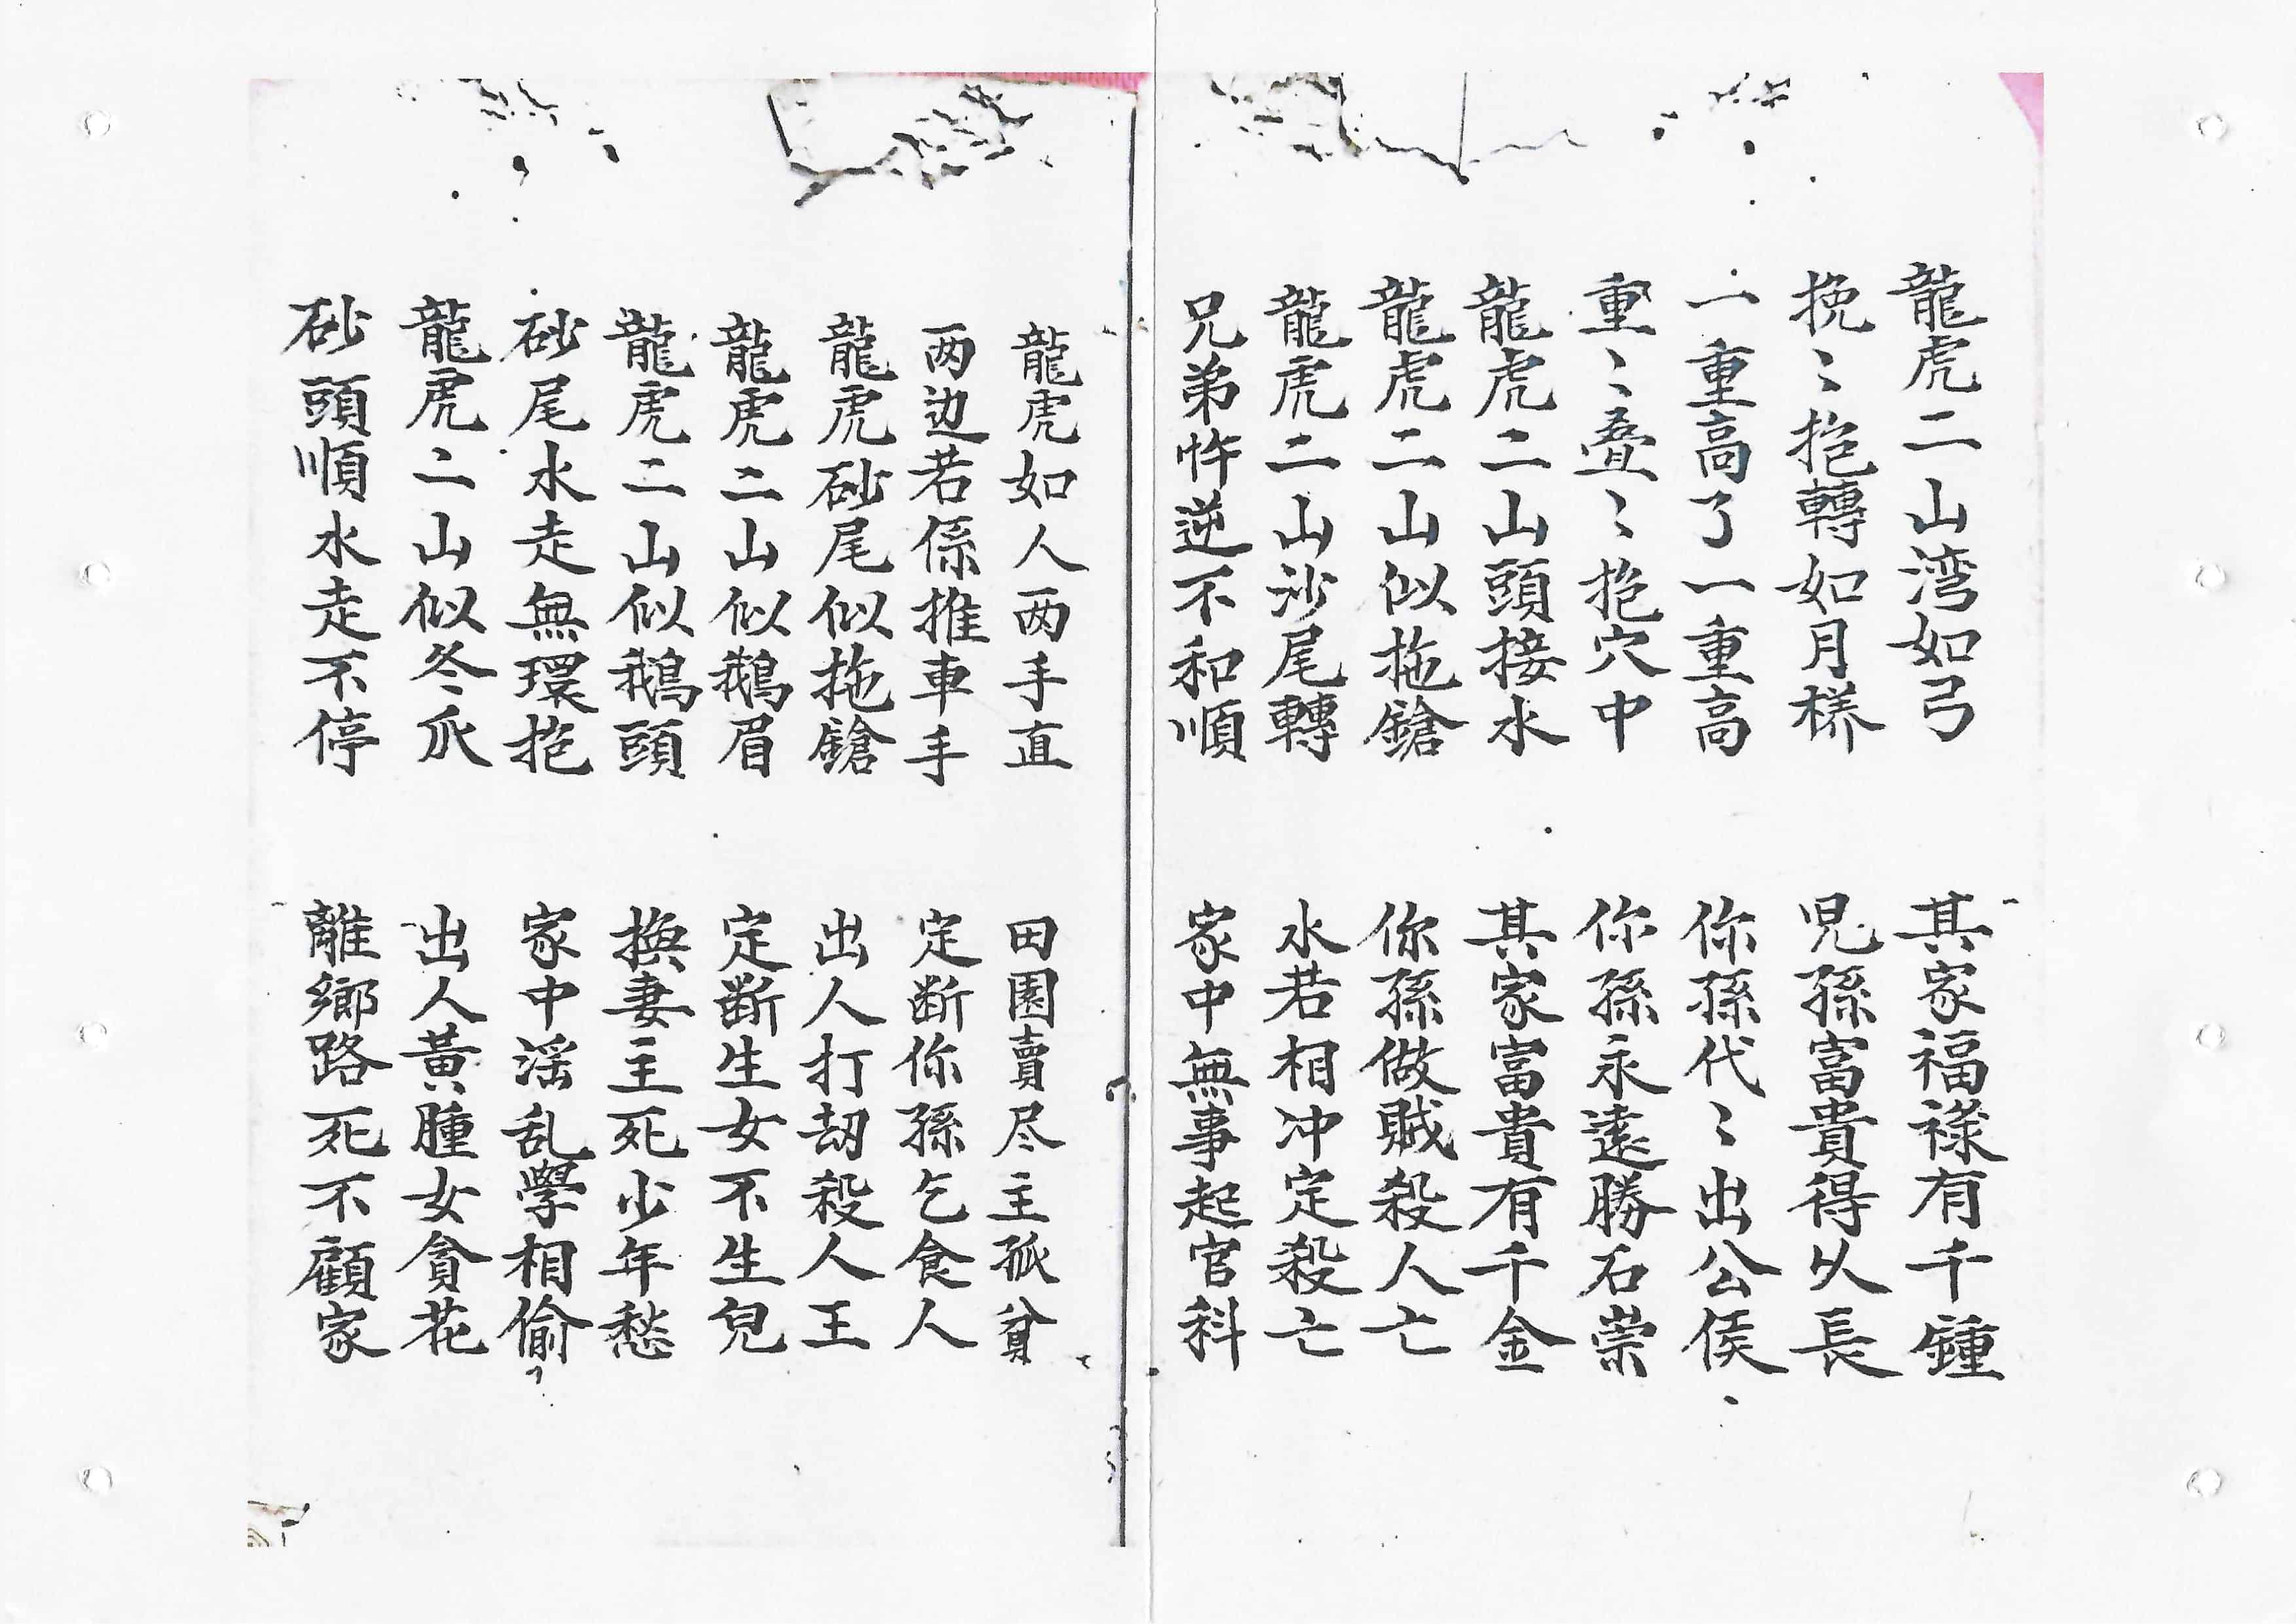 龍虎二山湾如弓 其家福祿有千鍾
挽〻抱轉如月樣 児孫富貴得久長
一重高了一重高 你孫代〻出公侯
重〻叠〻抱穴中 你孫永遠勝石崇
龍虎二山頭接水 其家富貴有千金
龍虎二山似拖鎗 你孫做賊殺人亡
龍虎二山沙尾轉 水若相冲定殺亡
兄弟忤逆不和順 家中無事起官科
龍虎如人两手直 田園賣尽主孤貧
两边若係推車手 定断你孫乞食人
龍虎砂尾似拖鎗 出人打刼殺人王
龍虎二山似鵝眉 定断生女不生兒
龍虎二山似鵝頭 換妻主死少年愁
砂尾水走無環抱 家中淫乱學相偷
龍虎二山似冬瓜 出人黃腫女貪花
砂頭順水走不停 離鄉路死不顧家